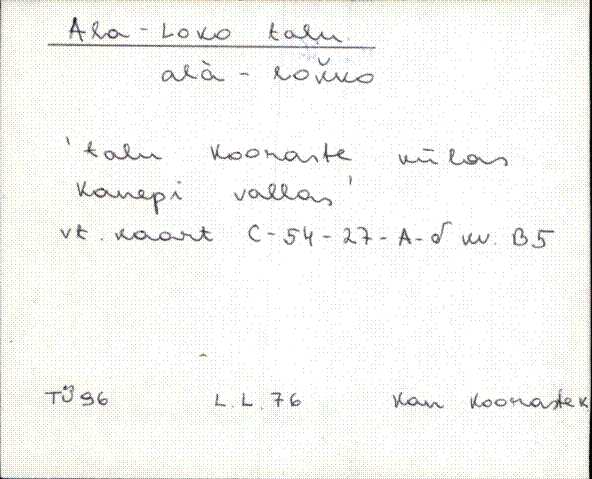 Ala-Loko talu
alà-lok̆ko
'talu Kooraste külas
Kanepi vallas'
vt. kaart C-54-27-A-d kv. B5
TÜ 96 L.L. 76 Kan Koorastek